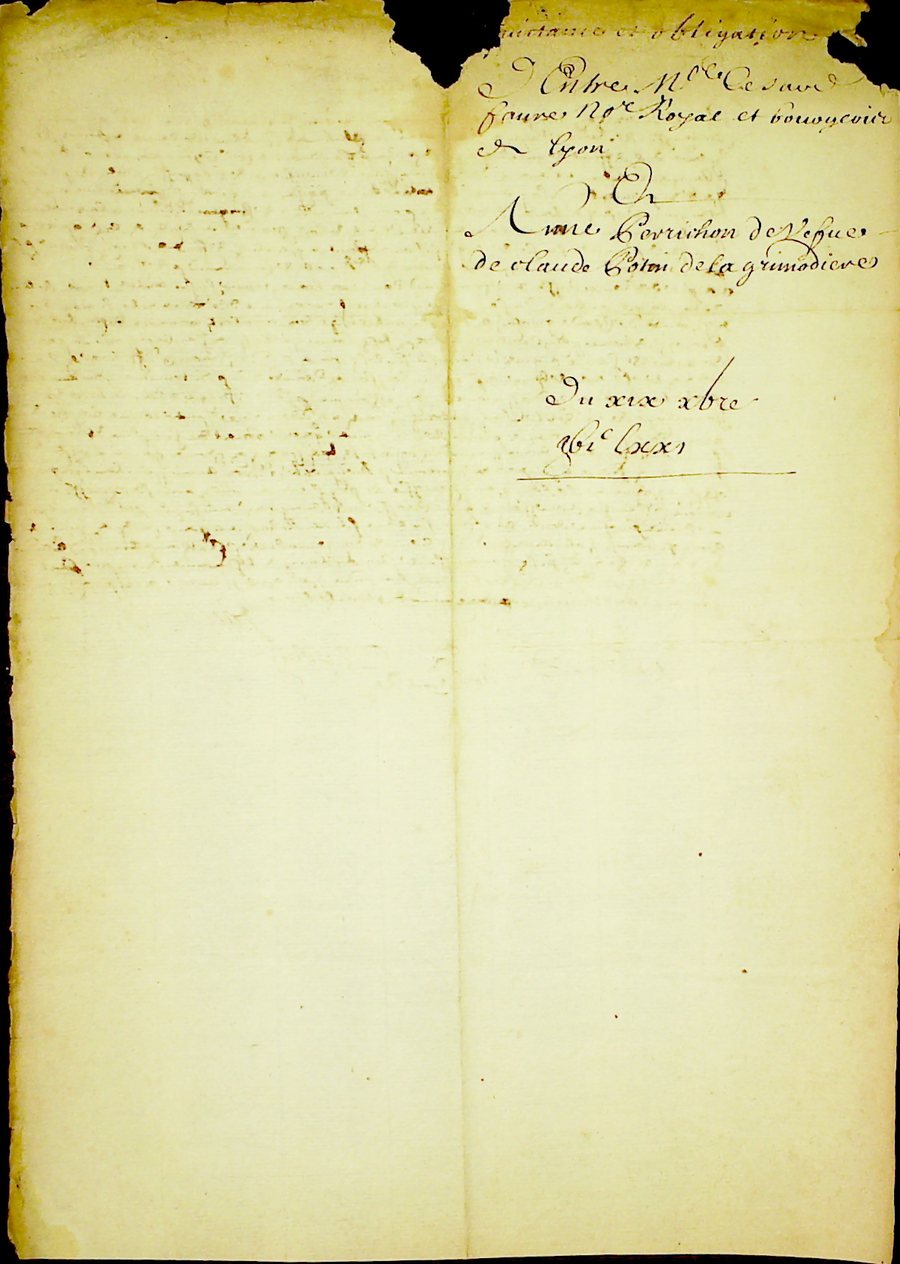 quictance et obligation
D'Entre Me Cesard
faure Nore Royal et bourgeois
de lyon
Et
Anne Perrichon De Vefue
de claude Potin de la grimodiere
Du xix xbre
lxxi